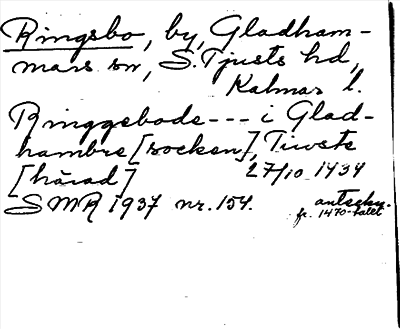 Ringsbo, by, Gladham-
mars sn, S. Tjusts hd,
Kalmar l.
Ringgebode--- i Glad-
hambre [socken], Tiwste
[härad] 27/10 1434
SMR 1937 nr. 154. anteckn.
fr. 1470-talet